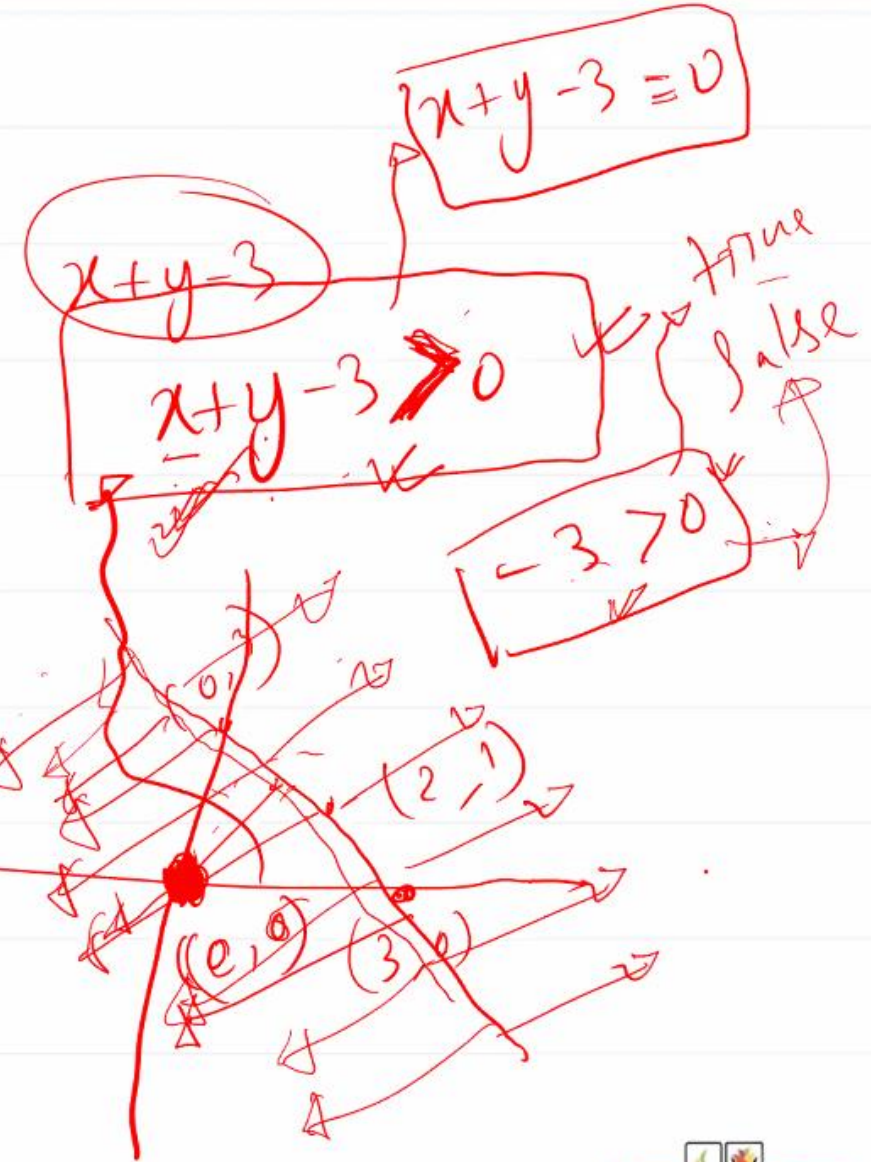 x+y-3=0
x+y-3
x+y-3>0
true
false
-3>0
(0,3)
(2,1)
(0,0)
(3,0)